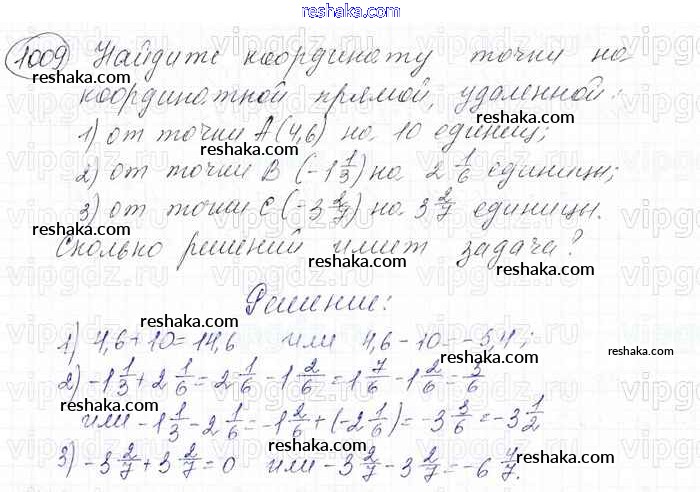 reshaka.com
1009 Найдите координату точки на
reshaka.com
координатной прямой, удаленной:
1) от точки A(4,6) на 10 единиц;
reshaka.com
2) от точки B (-1 1/3) на 2 1/6 единицы;
3) от точки C (-3 2/7) на 3 2/7 единицы.
reshaka.com
Сколько решений имеет задача?
reshaka.com
Решение:
reshaka.com
1) 4,6+10=14,6 или 4,6-10=-5,4;
reshaka.com
2) -1 1/3 + 2 1/6 = 2 1/6 - 1 2/6 = 1 7/6 - 1 2/6 = 5/6
reshaka.com
или -1 1/3 - 2 1/6 = -1 2/6 + (-2 1/6) = -3 3/6 = -3 1/2
3) -3 2/7 + 3 2/7 = 0 или -3 2/7 - 3 2/7 = -6 4/7.
reshaka.com